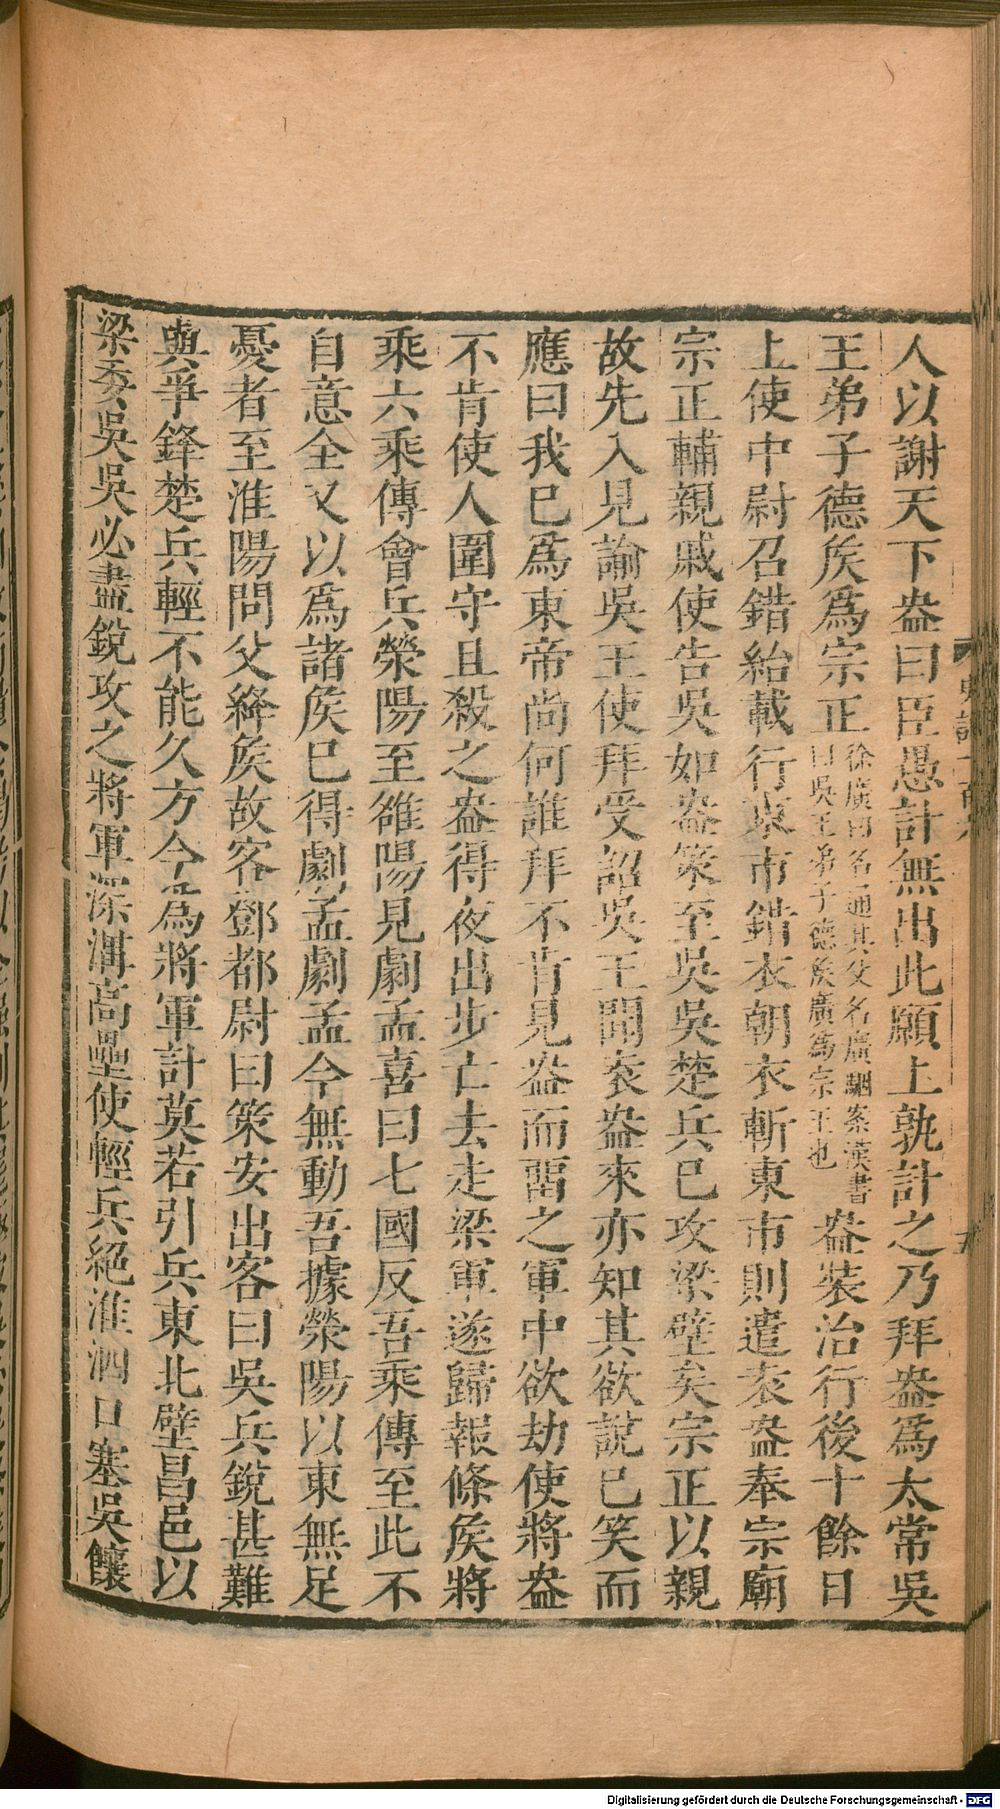 人以謝天下盎曰臣愚計無出此願上孰計之乃拜盎爲太常吳
王弟子德矦爲宗正
徐廣曰名通其父名廣駰案漢書
曰吳王弟子德矦廣爲宗正也
盎裝治行後十餘日
上使中尉召錯紿載行東市錯衣朝衣斬東市則遣袁盎奉宗廟
宗正輔親戚使告吳如盎策至吳吳楚兵已攻梁壁矣宗正以親
故先入見諭吳王使拜受詔吳王聞袁盎來亦知其欲說已笑而
應曰我已爲東帝尚何誰拜不肯見盎而畱之軍中欲劫使將盎
不肯使人圍守且殺之盎得夜出步亡去走梁軍遂歸報條矦將
乘六乘傳會兵滎陽至雒陽見劇孟喜曰七國反吾乘傳至此不
自意全又以爲諸矦已得劇孟劇孟今無動吾據滎陽以東無足
憂者至淮陽問父絳矦故客鄧都尉曰策安出客曰吳兵銳甚難
與爭鋒楚兵輕不能久方今爲將軍計莫若引兵東北壁昌邑以
梁委吳吳必盡銳攻之將軍深溝高壘使輕兵絕淮泗口塞吳饟
Digitalisierung gefördert durch die Deutsche Forschungsgemeinschaft - DFG